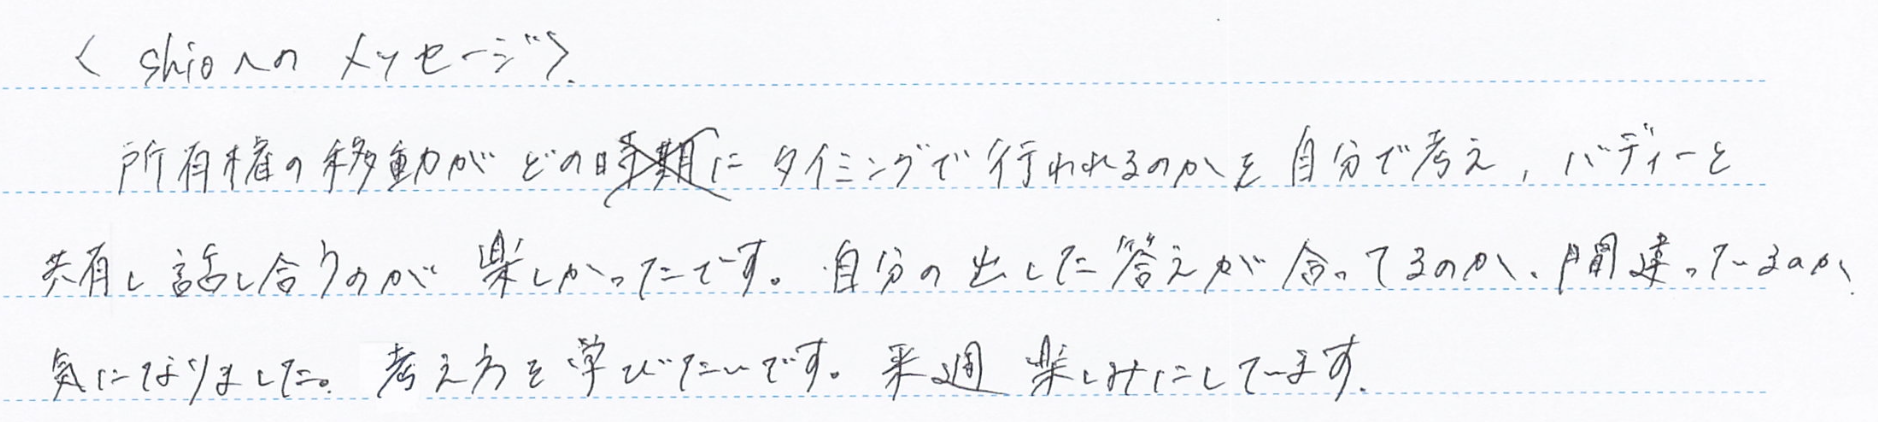 < shioへの メッセージ>.
所有権の移動がどのにタイミングで行われるのかを自分で考え, バディーと
共有し話し合うのが楽しかったです。自分の出した答えが合ってるのか、間違っているのか
気になりました。考え方を学びたいです。来週楽しみにしています.